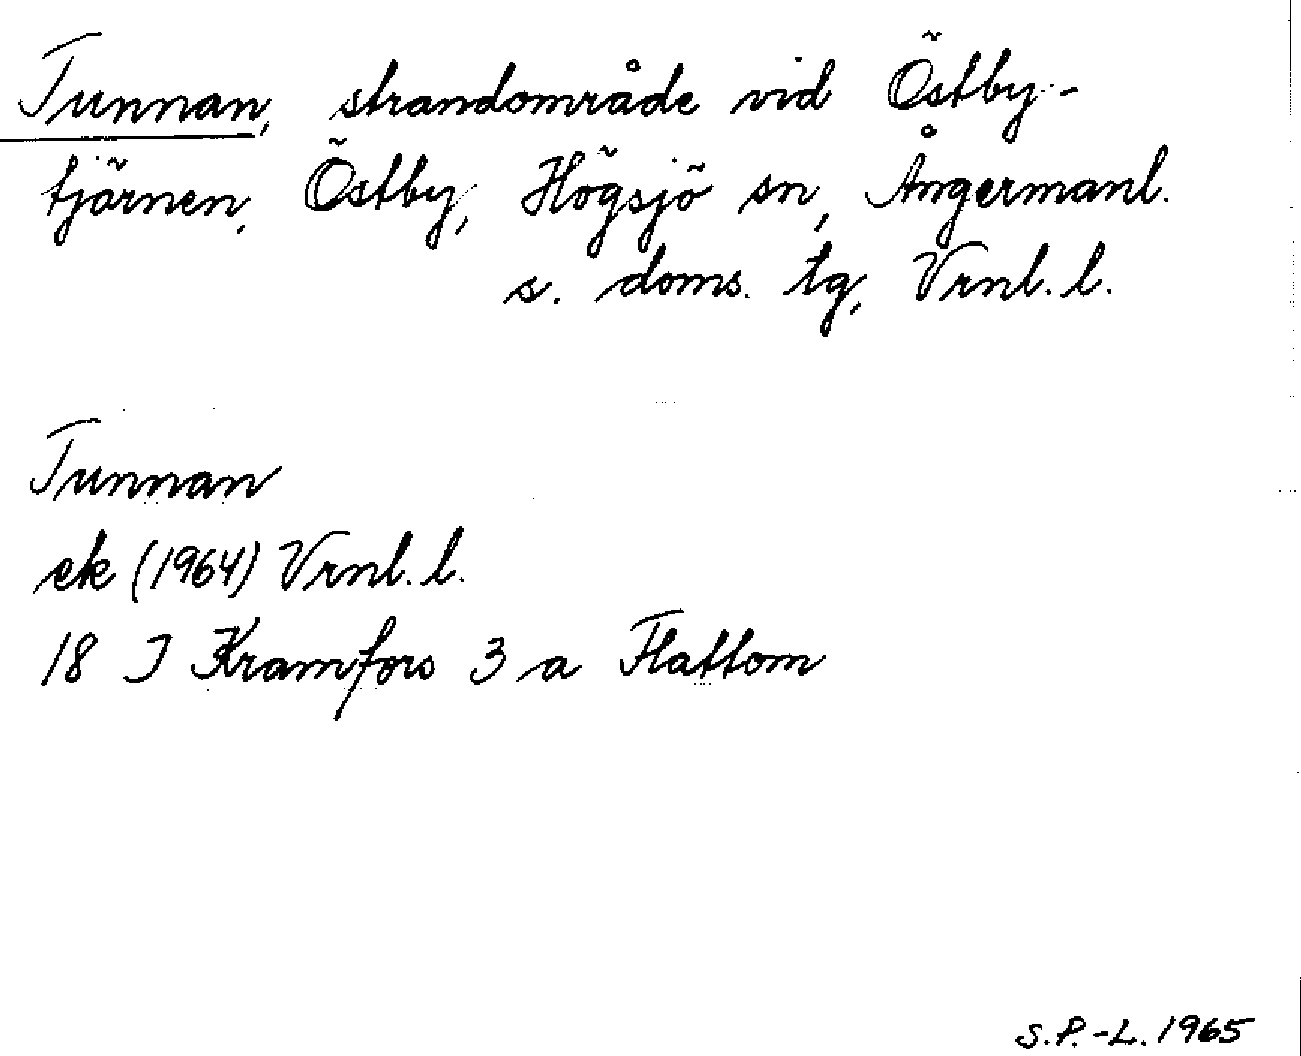 Tunnan, strandområde vid Östby-
tjärnen, Östby, Högsjö sn, Ångermanl.
s. doms. tg, Vrnl. l.
Tunnan
ek (1964) Vrnl. l.
18 I Kramfors 3 a Flattom
S.P.-L. 1965